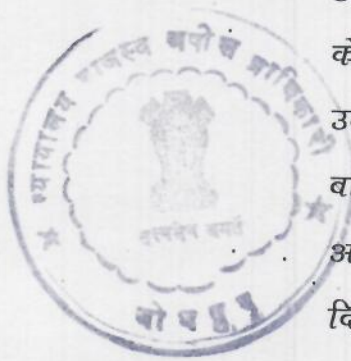 न्यायालय राजस्व अपील प्राधिकारी
सत्यमेव जयते
जोधपुर
के
उ
व
अ
दि